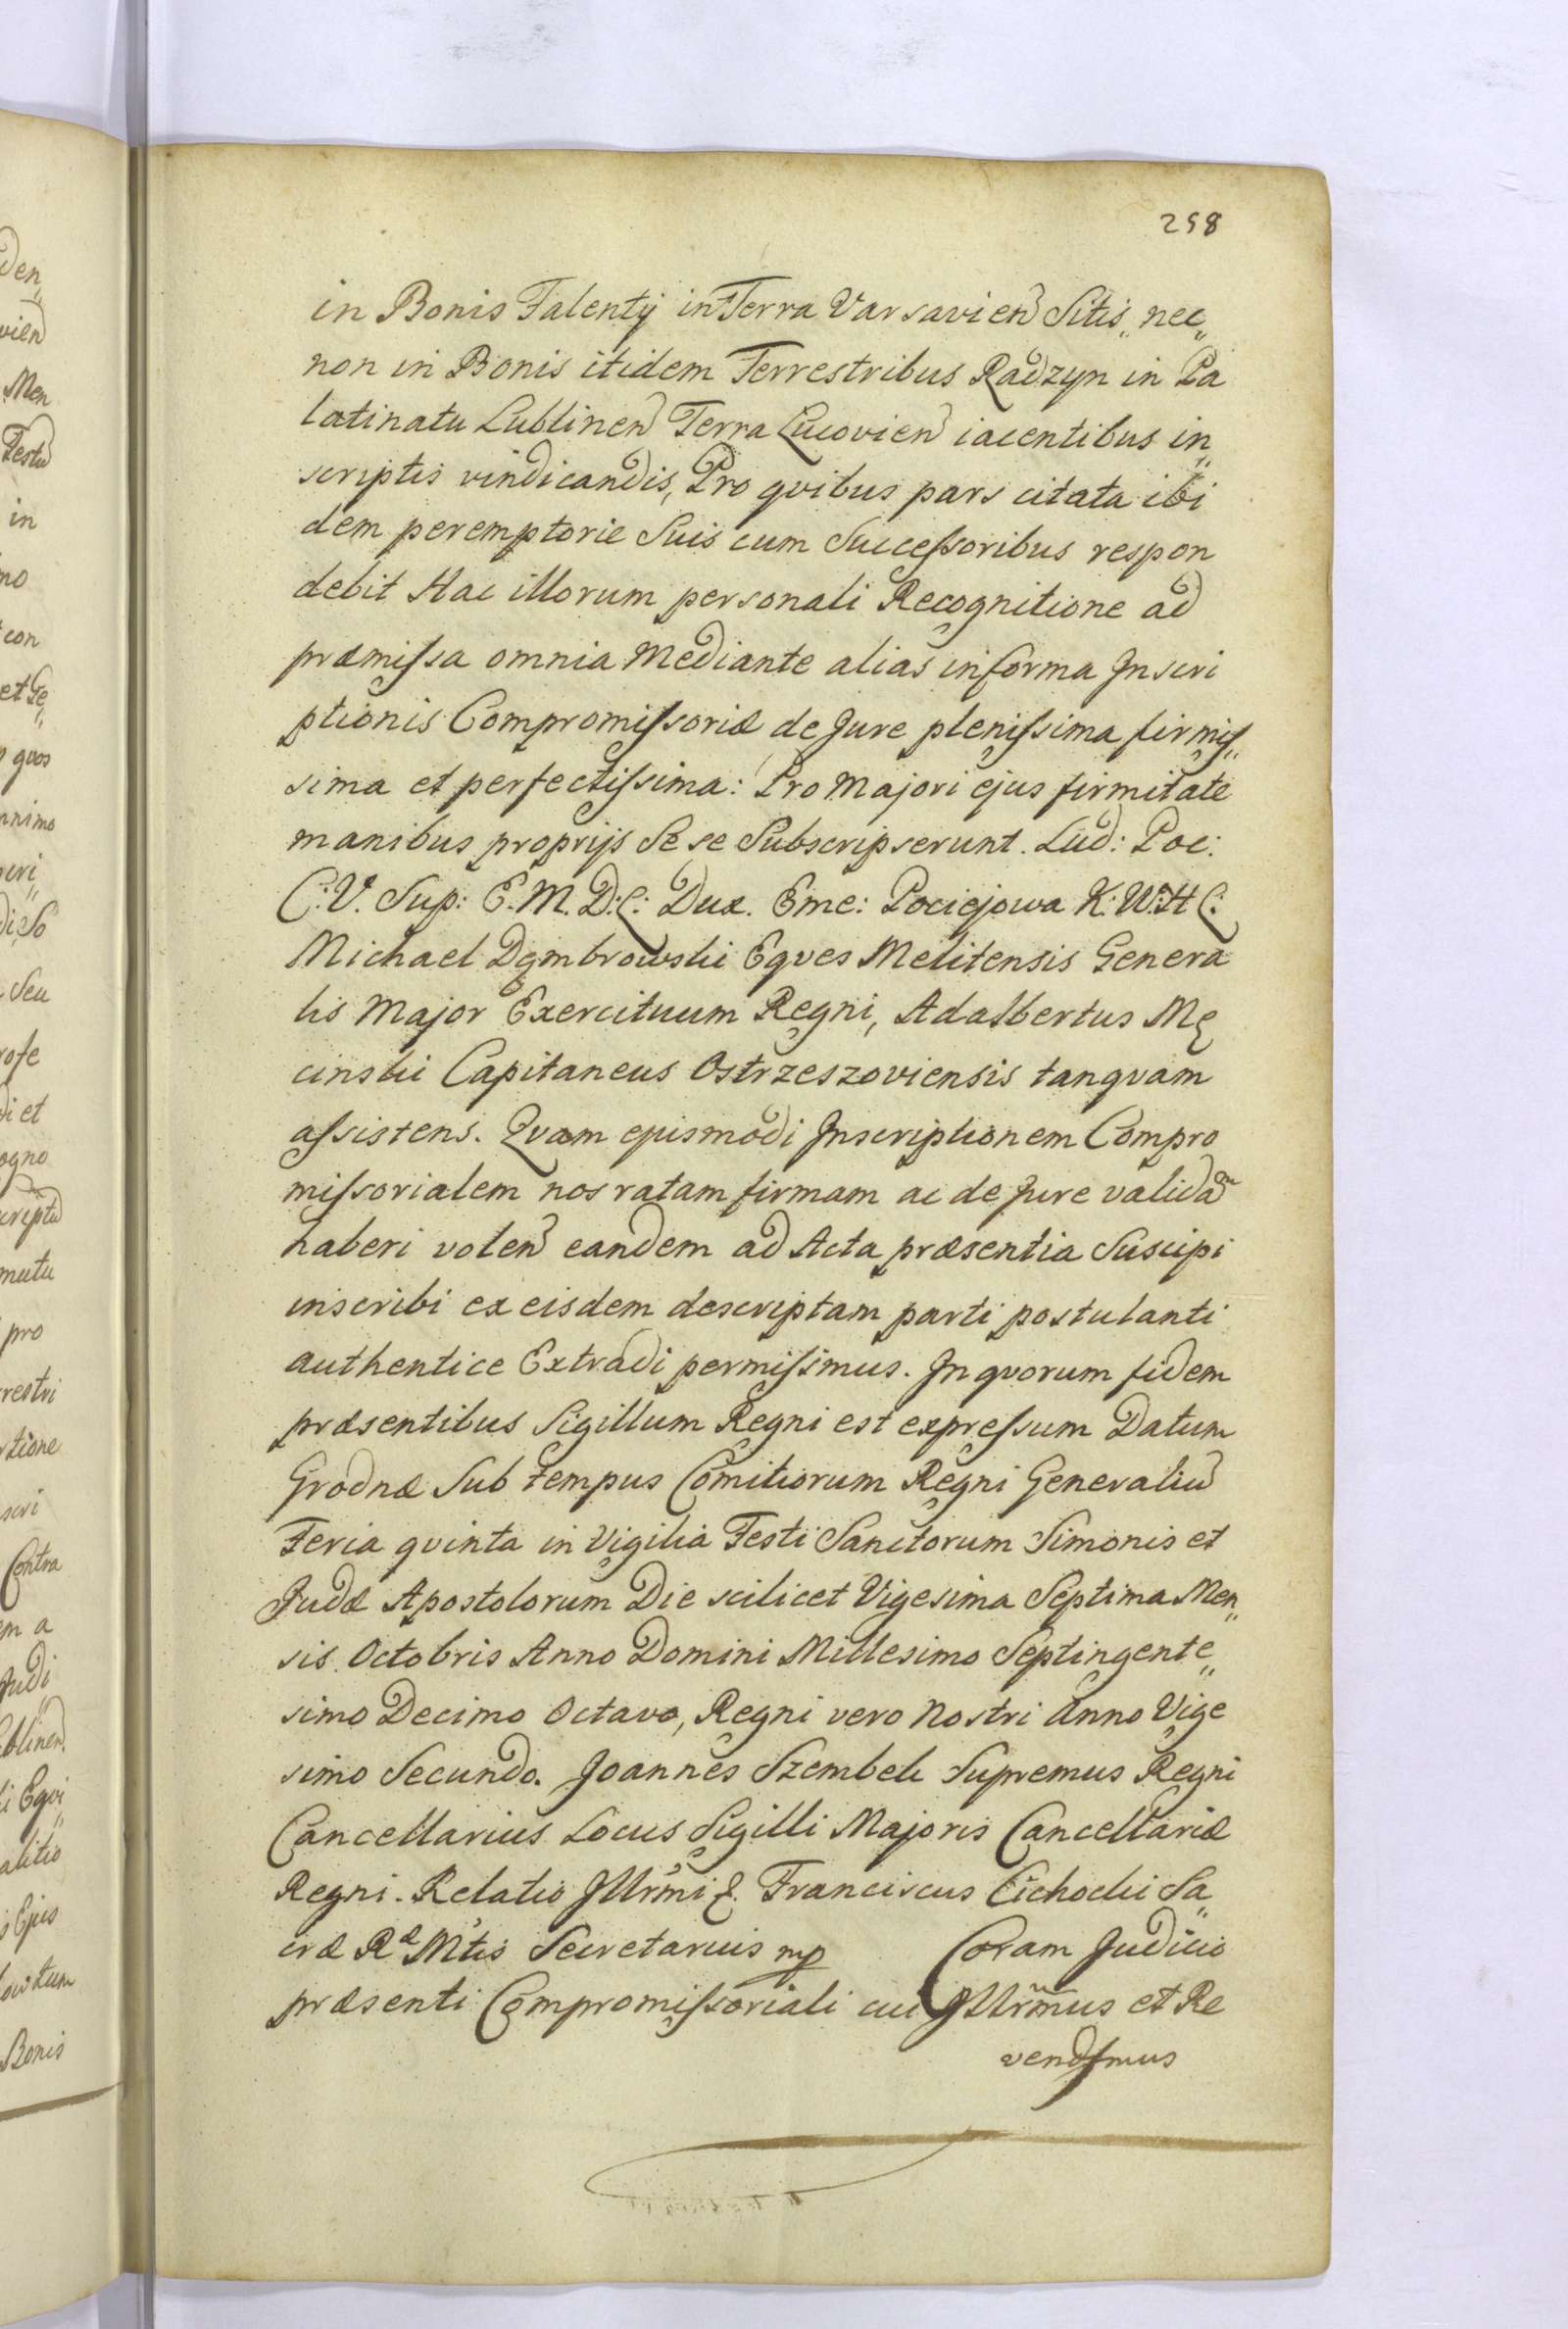 258
in Bonis Falenty in Terra Varsavien Sitis„ nec„
non in Bonis itidem Terrestribus Radzyn in Pa
latinatu Lublinen Terra Lucovien iacentibus in„
scriptis vindicandis, Pro qvibus pars citata ibi
dem peremptorie Suis cum Successoribus respon
debit Hac illorum personali Recognitione ad
præmissa omnia Mediante alias in forma Inscri
ptionis Compromissoriæ de Jure plenissima firmis„
sima et perfectissima: Pro Majori ejus firmitate
manibus proprijs Se se Subscripserunt. Lud: Poc:
C: V. Sup: E. M. D: L: Dux. Eme: Pociejowa K: W: H L:
Michael Dęmbrowski Eqves Melitensis Genera
lis Major Exercituum Regni, Adalbertus Mę
cinski Capitaneus Ostrzeszoviensis tanqvam
assistens. Qvam ejusmodi Inscriptionem Compro
missorialem nos ratam firmam ac de Jure validam
haberi volen eandem ad Acta præsentia Suscipi
inscribi ex eisdem descriptam parti postulanti
authentice Extradi permisimus. In qvorum fidem
præsentibus Sigillum Regni est expressum Datum
Grodnæ Sub tempus Comitiorum Regni Generaliu
Feria qvinta in Vigilia Festi Sanctorum Simonis et
Judæ Apostolorum Die scilicet Vigesima Septima Men„
sis Octobris Anno Domini Millesimo Septingente„
simo Decimo Octavo, Regni vero Nostri Anno Vige
simo Secundo. Joannes Szembek Supremus Regni
Cancellarius Locus Sigilli Majoris Cancellariæ
Regni. Relatio Illrmi &. Franciscus Cichocki Sa„
cræ Ræ Mtis Secretarius mp Coram Judicio
præsenti Compromissoriali cui Illrmus et Re
vendsmus
den„
vien
Men
Testu
in
mo
con
et Te„
quos
nnimo
seri„
di So
Seu
rofe
di et
ogno
criptu
mutu
pro
restri
rtione
seri
Contra
em a
Judi„
blinen
i Eqvi„
alitio
Ejus
Bonis